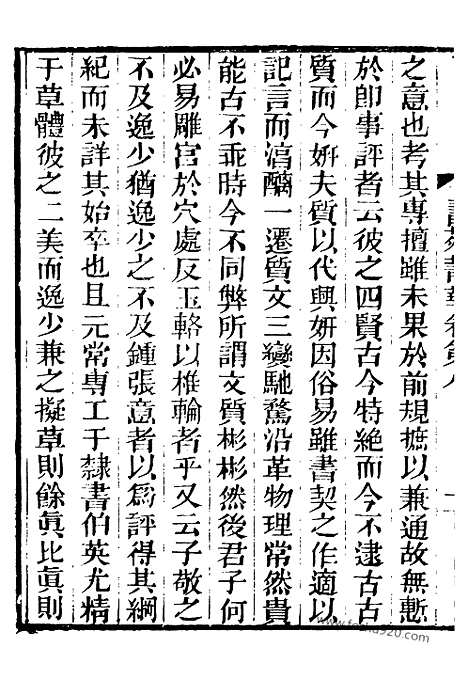 之意也考其專擅雖未果於前規摭以兼通故無慙
於卽事評者云彼之四賢古今特絕而今不逮古古
質而今妍夫質以代興妍因俗易雖書契之作適以
記言而淳醨一遷質文三變馳騖沿革物理常然貴
能古不乖時今不同弊所謂文質彬彬然後君子何
必易雕宮於穴處反玉輅以椎輪者乎又云子敬之
不及逸少猶逸少之不及鍾張意者以爲評得其綱
紀而未詳其始卒也且元常專工于隸書伯英尤精
于草體彼之二美而逸少兼之擬草則餘眞比眞則